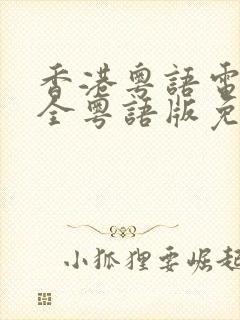 香港粵語電
全粵語版免
小狐狸要崛起